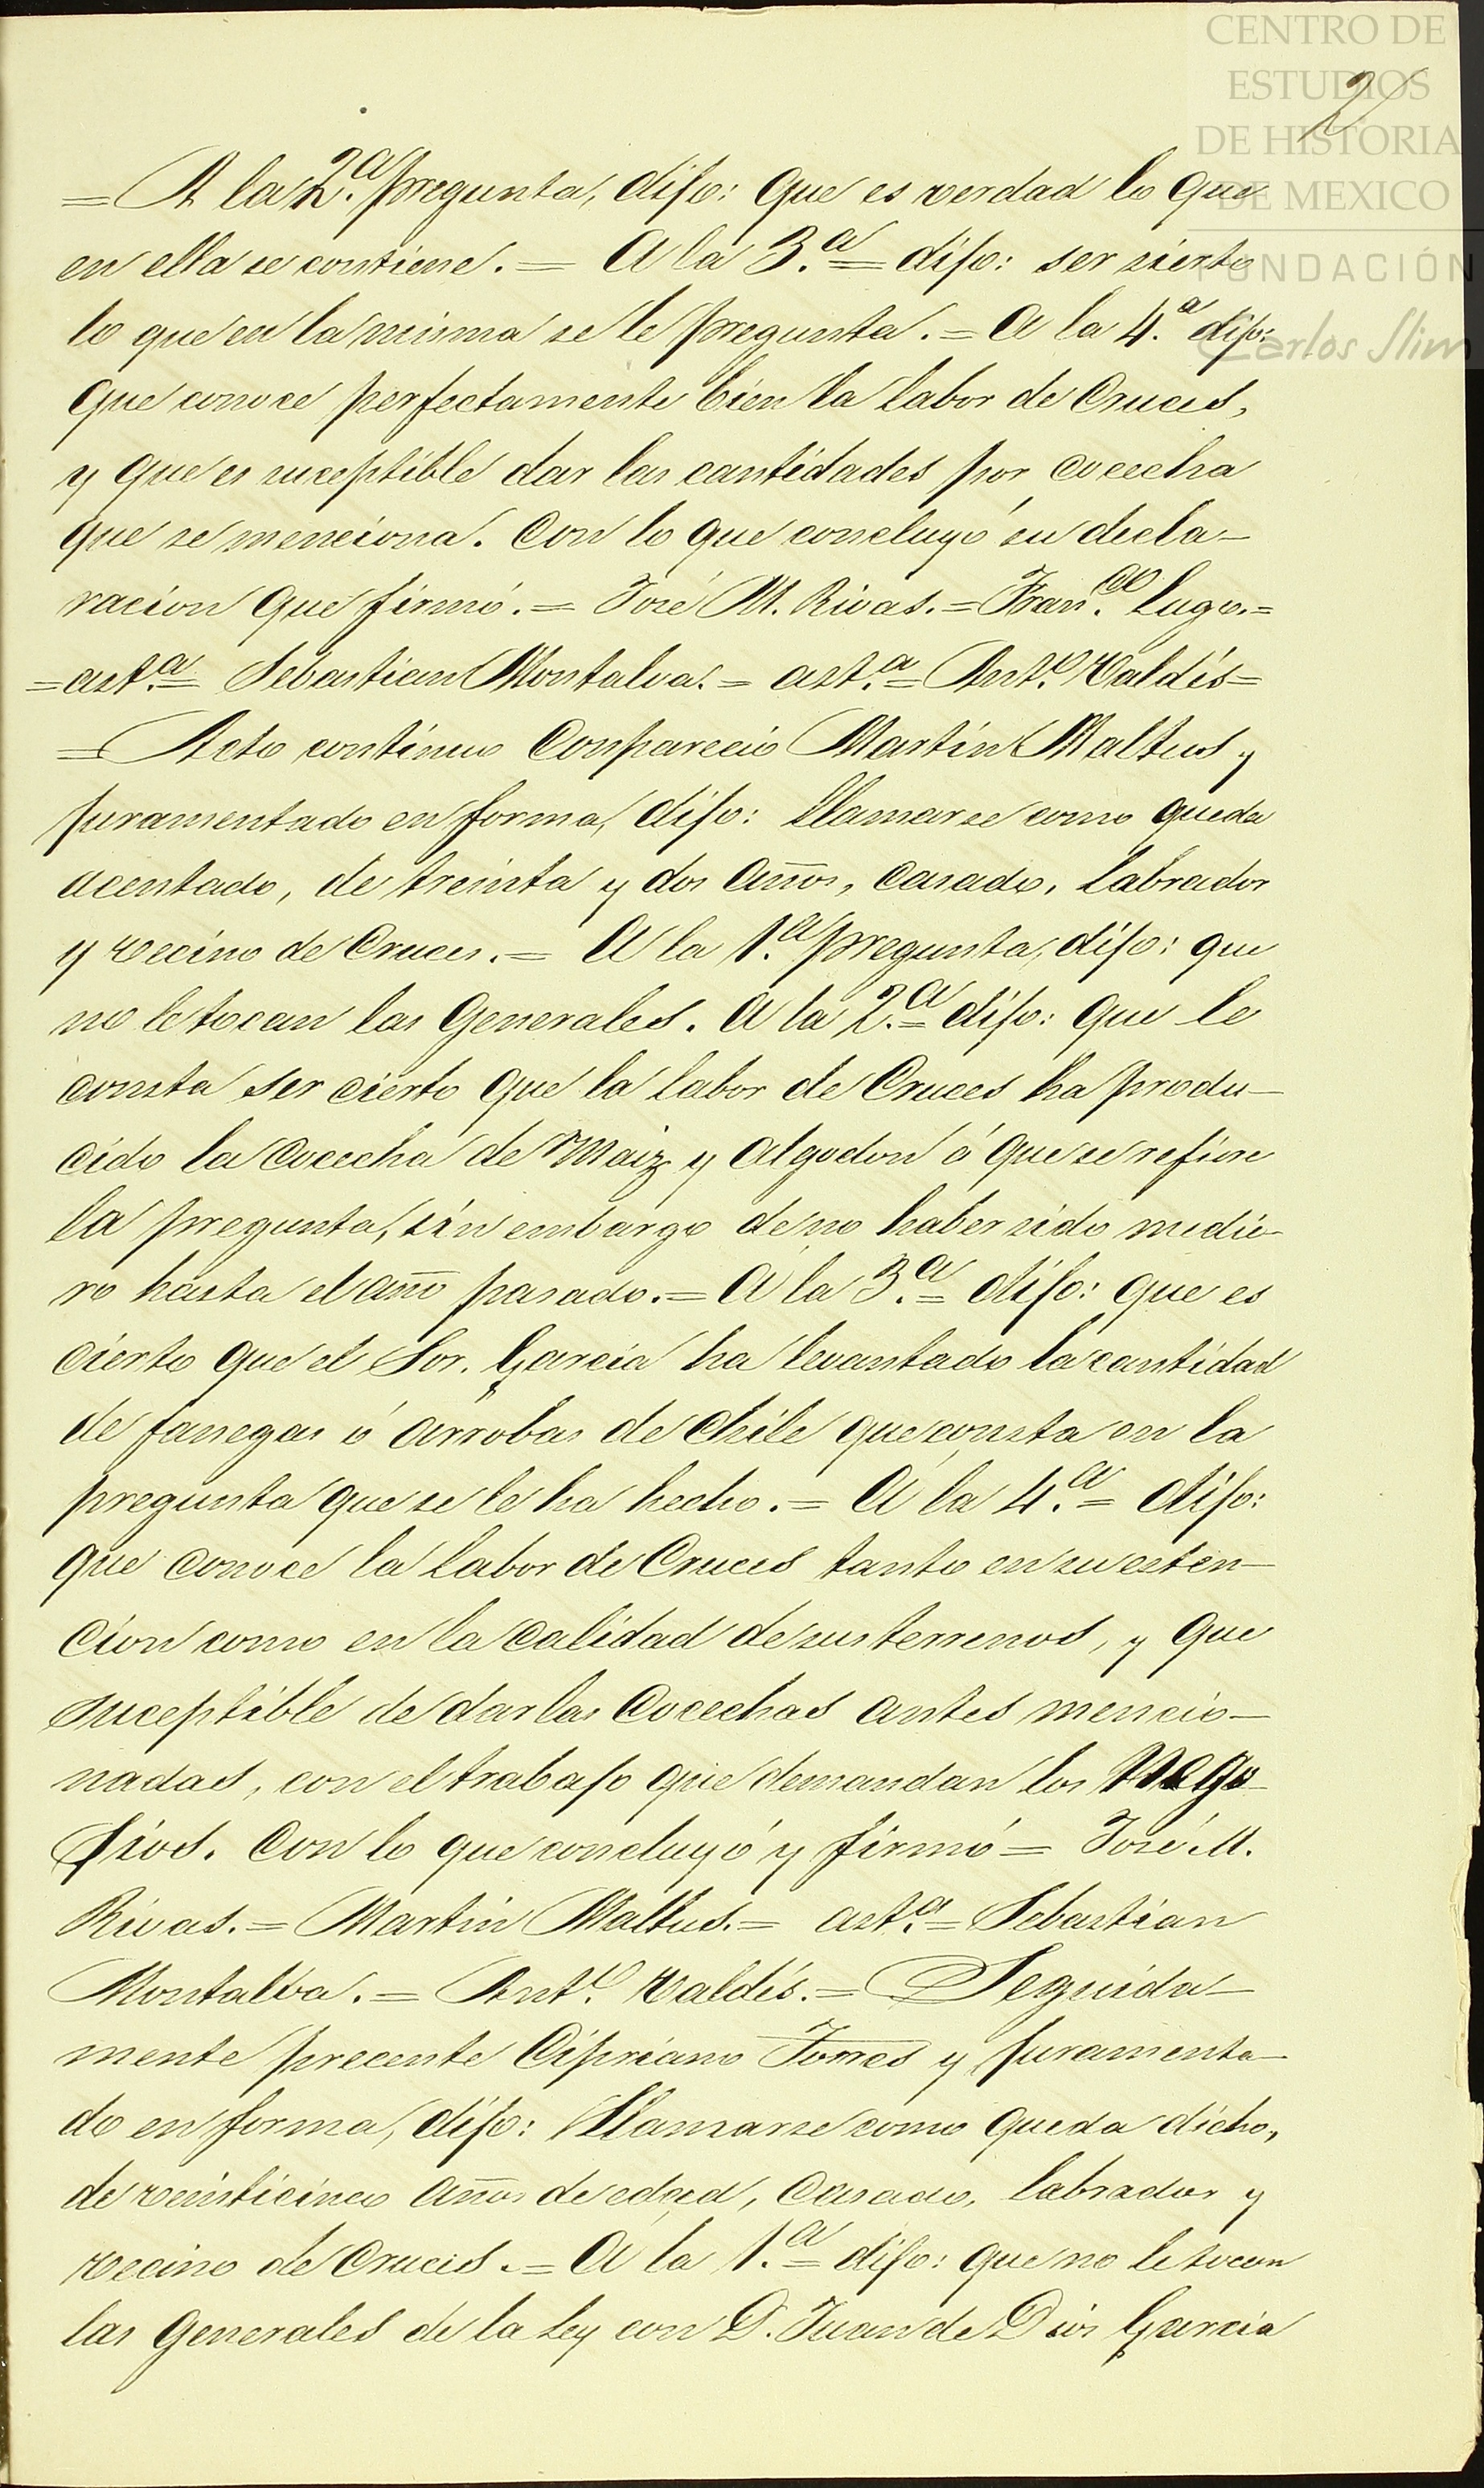 CENTRO DE
ESTUDIOS
DE HISTORIA
DE MEXICO
FUNDACIÓN
Carlos Slim
2
=A la 2.ª pregunta, dijo: que es verdad lo que
en ella se contiene.= A la 3.ª= dijo: ser sierto
lo que en la misma se le pregunta.= A la 4.ª dijo:
que conoce perfectamente bien la labor de Cruces,
y que es suceptible dar las cantidades por cocecha
que se menciona. Con lo que concluyó su decla-
racion que firmó.= José M. Rivas.= Fran.co Lugo.=
=ast.ª= Sebastian Montalva.= ast.ª= Ant.º Valdés=
=Acto continuo Conpareció Martin Maltus y
juramentado en forma, dijo: llamarse como queda
acentado, de treinta y dos años, casado, labrador
y vecino de Cruces.= A la 1.ª pregunta, dijo: que
no le tocan las Generales. A la 2.ª= dijo: que le
consta ser cierto que la labor de Cruces ha produ-
cido la cocecha de Maiz y algodon á que se refiere
la pregunta, sin embargo de no haber sido medie-
ro hasta el año pasado.= A la 3.ª= dijo: que es
cierto que el Sor. Garcia ha levantado la cantidad
de fanegas ó arrobas de chile que consta en la
pregunta que se le ha hecho.= A la 4.ª= dijo:
que conoce la labor de Cruces tanto en su esten-
cion como en la calidad de sus terrenos, y que
suceptible de dar las cocechas antes mencio-
nadas, con el trabajo que demandan los nego-
sios. Con lo que concluyó y firmó= José M.
Rivas.= Martin Maltus.= ast.ª= Sebastian
Montalva.= Ant.º Valdés.= Seguida-
mente precente Cipriano Torres y juramenta-
do en forma, dijo: llamarse como queda dicho,
de veinticinco años de edad, casado, labrador y
vecino de Cruces.= A la 1.ª= dijo: que no le tocan
las Generales de la Ley con D. Juan de Dios Garcia